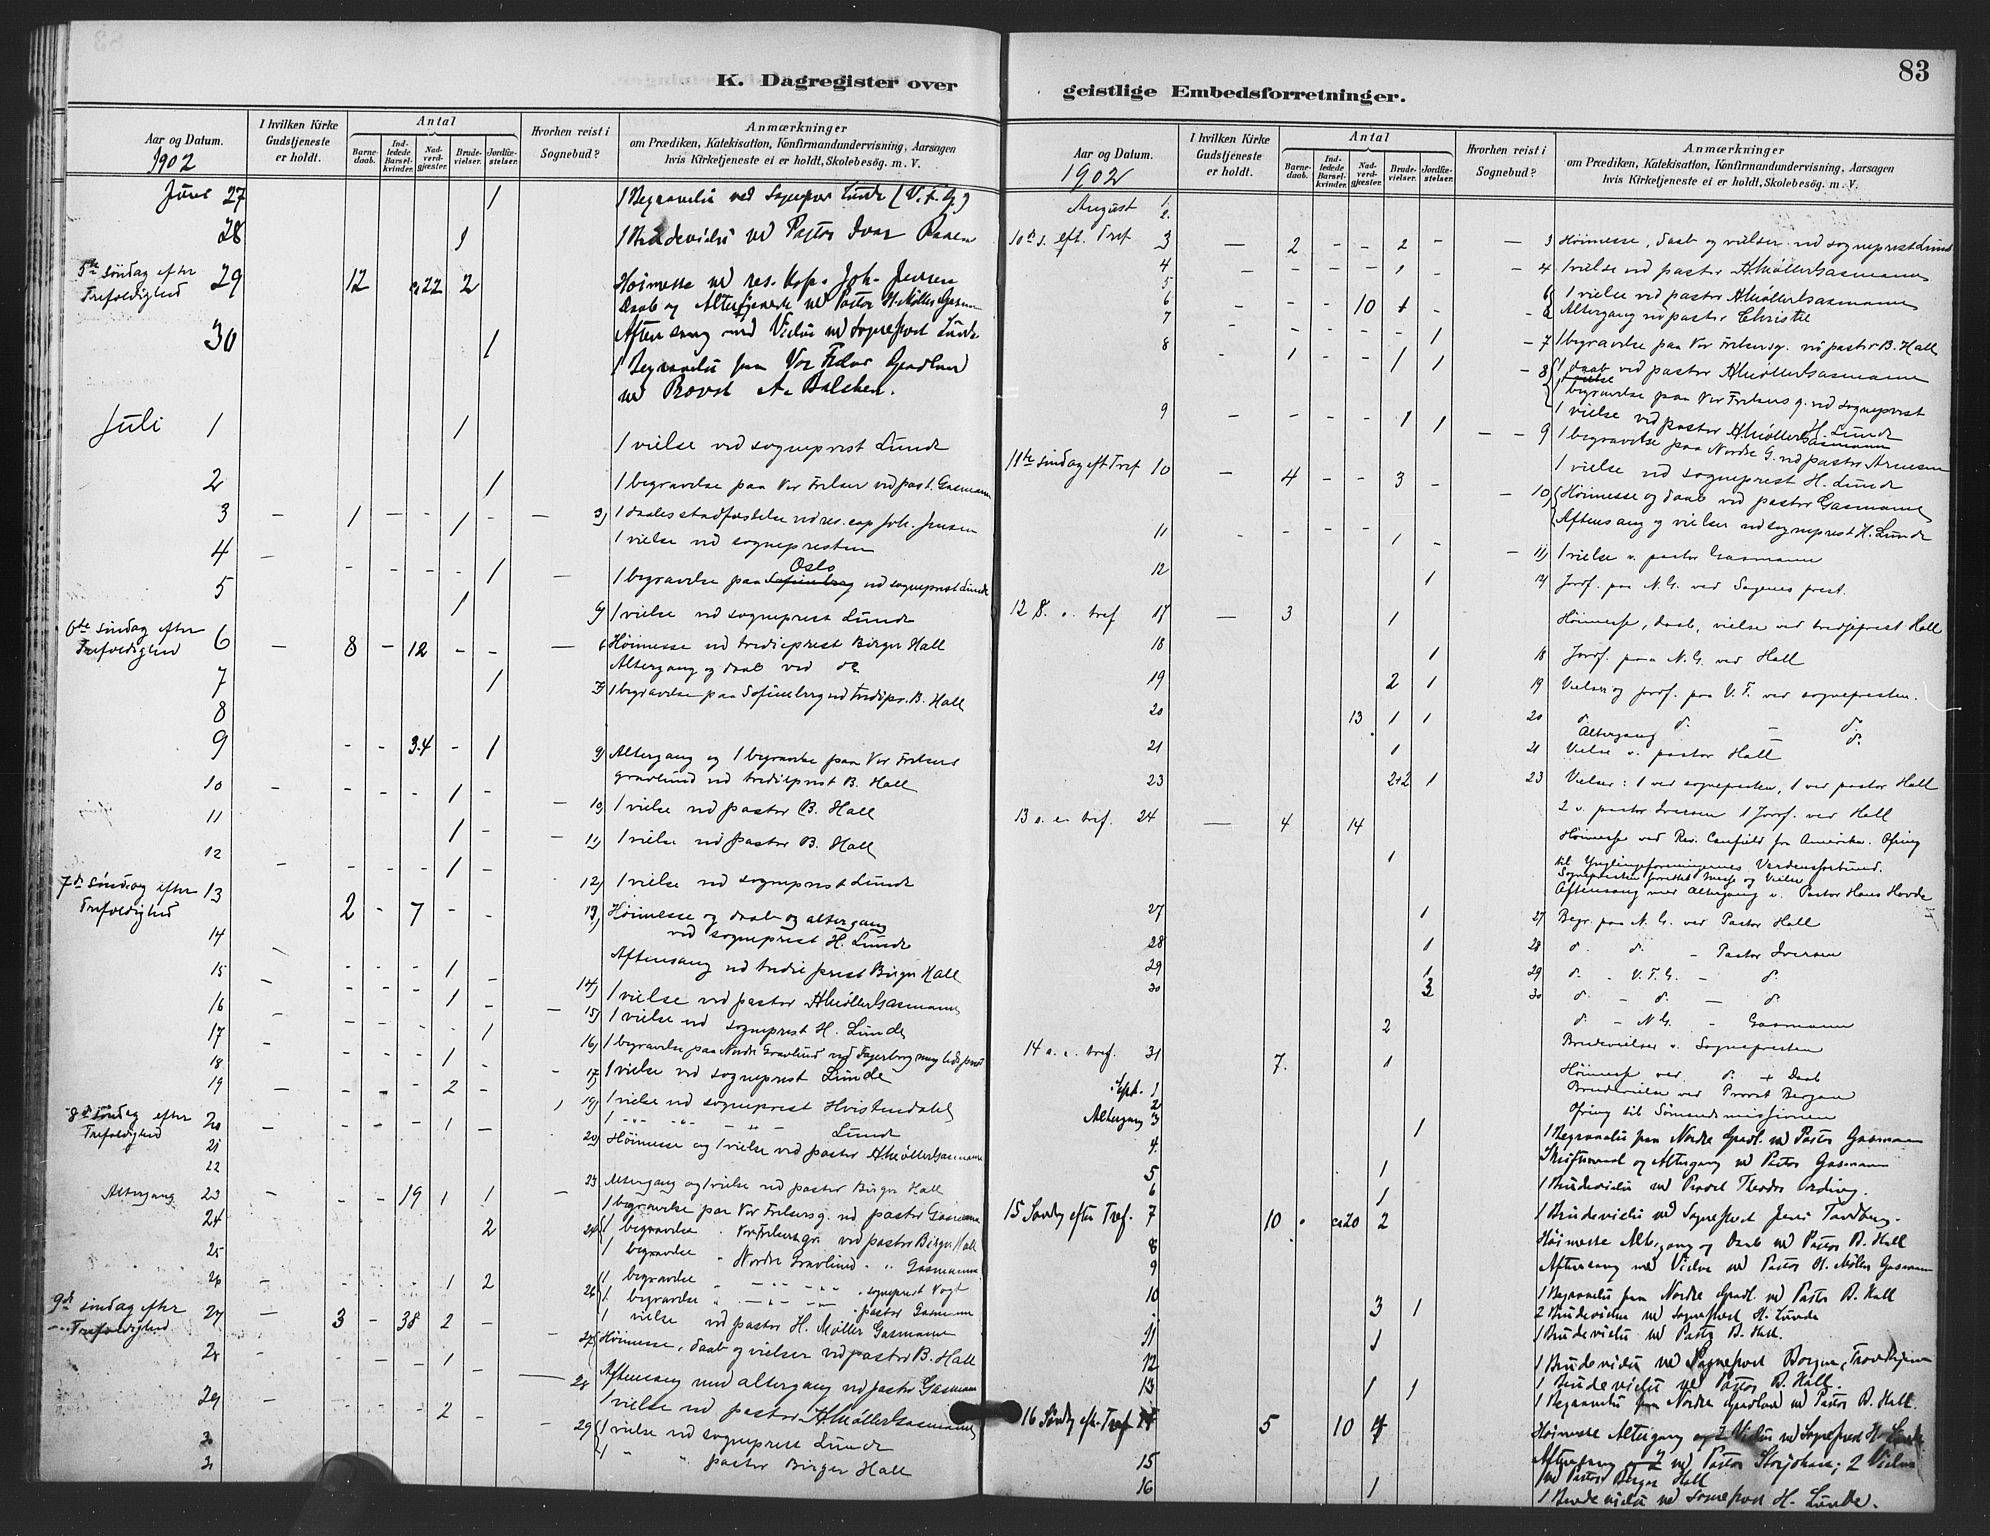 83
K. Dagregister over
geistlige Embedsforretninger.
Aar og Datum.
1902
I hvilken Kirke
Gudstjeneste
er holdt.
Antal
Barne-
daab.
Ind-
ledede
Barsel-
kvinder.
Nad-
verd-
gjester.
Brude-
vielser.
Jordfæ-
stelser.
Hvorhen reist i
Sognebud?
Anmærkninger
om Prædiken, Katekisation, Konfirmandundervisning, Aarsagen
hvis Kirketjeneste ei er holdt, Skolebesøg. m. V.
Juni 27 1 1 Begravelse ved Sognepr Lunde (V. F. G.)
28 1 1 Brudevielse ved Pastor Ivar
5te Søndag efter
Trefoldighed 29 12 22 2 Høimesse ved res. Kap. Joh. Jensen
Daab og Altertjeneste ved Pastor H. Møller Gasmann
Aftensang med Vielse ved Sogneprest Lunde
30 1 1 Begravelse paa Vor Frelser Gravlund
ved Provst A. Balchen.
Juli 1 1 1 vielse ved sogneprest Lunde
2 1 1 begravelse paa Vor Frelser ved past. Gasmann
3 – 1 – – 1 – – 3) 1 daabsstadfæstelse ved res. cap Joh. Jensen
1 vielse ved sognepresten
4 – – – – – 1 – Oslo
1 begravelse paa Sofienberg ved sogneprest Lunde
5 1 5) 1 vielse ved sogneprest Lunde
6te søndag efter
Trefoldighed 6 – 8 – 12 – – – 6 Høimesse ved tredieprest Birger Hall
Altergang og daab ved do
7 1 7) 1 begravelse paa Sofienberg ved trediepr. B. Hall
8
9 – – 34 – 1 9) Altergang og 1 begravelse paa Vor Frelsers
gravlund ved tredieprest B. Hall
10 – – – – 1 – – 10 1 vielse ved pastor B. Hall
11 1 – – 11) 1 vielse ved pastor B. Hall
12 – – – – 1 – 12) 1 vielse ved sogneprest Lunde
7de søndag efter
Trefoldighed 13 2 – 7 – – 13) Høimesse og daab og altergang
ved sogneprest H. Lunde
Aftensang ved tredie prest Birger Hall
14 – – – – 1 – 14) 1 vielse ved pastor H Møller Gasmann
15 – – – – 1 – – 15) 1 vielse ved sogneprest H. Lunde
16 – – – – – 1 16) 1 begravelse paa Nordre Gravlund ved Fagerborg menigheds prest
17 – – – – 1 – – 17) 1 vielse ved sogneprest Lunde
18 19) 1 vielse ved sogneprest Hvistendahl
19 – – – – 2 – 1 Lunde
8de søndag efter
Trefoldighed 20 – – – – 1 – 20) Høimesse og 1 vielse ved pastor H Møller Gasmann
21
22
Altergang 23 – – – 19 1 1 – 23 Altergang og 1 vielse ved pastor Birger Hall
1 begravelse paa Vor Frelsersg. ved pastor Gasmann
24 2 24 1 begravelse Vor Frelsers gr. ved pastor Birger Hall
1 begravelse Nordre Gravlund Gasmann
25
26 – – – – 1 2 26 1 begravelse sogneprest Vogt
1 begravelse pastor Gasmann
1 vielse ved pastor H. Møller Gasmann
9de søndag efter
Trefoldighed 27 – 3 – 38 2 – – 27 Høimesse, daab og vielser ved pastor B. Hall
Aftensang med altergang ved pastor Gasmann
28 – – – – 1 – – 28 1 vielse ved pastor H Møller Gasmann
29 – 2 – – 29 1 vielse ved sogneprest Lunde
1 " pastor Birger Hall
30
31
Aar og Datum.
1902
I hvilken Kirke
Gudstjeneste
er holdt.
Antal
Barne-
daab.
Ind-
ledede
Barsel-
kvinder.
Nad-
verd-
gjester.
Brude-
vielser.
Jordfæ-
stelser.
Hvorhen reist i
Sognebud?
Anmærkninger
om Prædiken, Katekisation, Konfirmandundervisning, Aarsagen
hvis Kirketjeneste ei er holdt, Skolebesøg. m. V.
August 1.
2.
10de s. eft. Tref 3 – 2 – – 2 – – 3 Høimesse, daab og vielser ved sogneprest Lunde
4 – – – – 1 – – 4 1 vielse ved pastor H Møller Gasmann
5
6 – – – 10 1 – 6 1 vielse ved pastor H Møller Gasmann
– 6 Altergang ved pastor Christie
7 – – – – – 1 – 7 1 begravelse paa Vor Frelsersg. ved pastor B. Hall
8 – 1 – – 1 1 – 8 1 daab ved pastor H Møller Gasmann
1 begravelse paa Vor Frelsers g. ved sogneprest
H. Lunde
1 vielse ved pastor H Møller Gasmann
9 – – – – 1 1 – – 9 1 begravelse paa Nordre G. ved pastor Arnesen
1 vielse ved sogneprest H. Lunde
11te søndag eft Tref 10 – 4 – – 3 – – 10 Høimesse og daab ved pastor Gasmann
Aftensang og vielser ved sogneprest H. Lunde
11 – – – – 1 – – 11) 1 vielse v. pastor Gasmann
12 1 12 Jordf. paa N. G. ved Sagenes prest.
12 S. e. tref 17 – 3 1 Høimesse, daab, vielse ved tredieprest Hall
18 1 18 Jordf. paa N. G. ved Hall
19 2 1 19 Vielser og jordf. paa V. F. ved sognepresten.
20 13 1 1 20 d. d. – d.
Altergang d.
21 1 21 Vielse v. pastor Hall
23 2+2 1 23 Vielser: 1 ved sognepresten, 1 ved pastor Hall
2 v. pastor Iversen 1 Jordf. ved Hall
13 s. e. tref. 24 – 4 14 Høimesse ved Rev. Canfield fra Amerika. Ofring
1 til Ynglingeforeningernes Verdensforbund.
Sognepresten forrettet messe og Vielse
Aftensang med Altergang v. Pastor Hans Hovde
27 1 27 Begr. paa N. G. ved Pastor Hall
28 1 28 d. d. – Pastor Iversen
29 1 29 d. – V. F. G. – d.
30 3 30 d. – d. – d.
d. – N G. – Gasmann
2 Brudevielser v. Sognepresten
14 s. e. tref. 31 7. 1 Høimesse ved d. + Daab
Brudevielse ved Provst Bergan
Ofring til Sømandsmissionen
Sept. 1
2
Altergang 3 1 1 Begravelse paa Nordre Gravl. ved Pastor Gasmann
Skriftemaal og Altergang ved Pastor Gasmann
4.
5 1 1 Brudevielse ved Provst Theodor Ording.
6 1 1 Brudevielse ved Sogneprest Jens Tandberg.
15 Søndag efter Tref. 7 10 20 2 Høimesse Altergang og Daab ved Pastor B. Hall
Aftensang med Vielse ved Pastor H. Møller Gasmann
8
9 1 Begravelse paa Nordre Gravl. ved Pastor B. Hall
10 3 1 2 Brudevielser ved Sogneprest H. Lunde
1 Brudevielse ved Pastor B. Hall.
11 1 1 Brudevielse ved Sogneprest Borgen, Trondhjem
12 1 Brudevielse ved Pastor B. Hall.
13 1 1 1 Begravelse paa Nordre Gravlund ved Pastor B. Hall.
16 Søndg eft. Tref 14 5 10 4 Høimesse Altergang og 2 Vielser ved Sogneprest H. Lunde
Aftensang ved Pastor Storjohann; 2 Vielser
ved Pastor Birger Hall
15
16 1 1 Brudevielse ved Sogneprest H. Lunde.